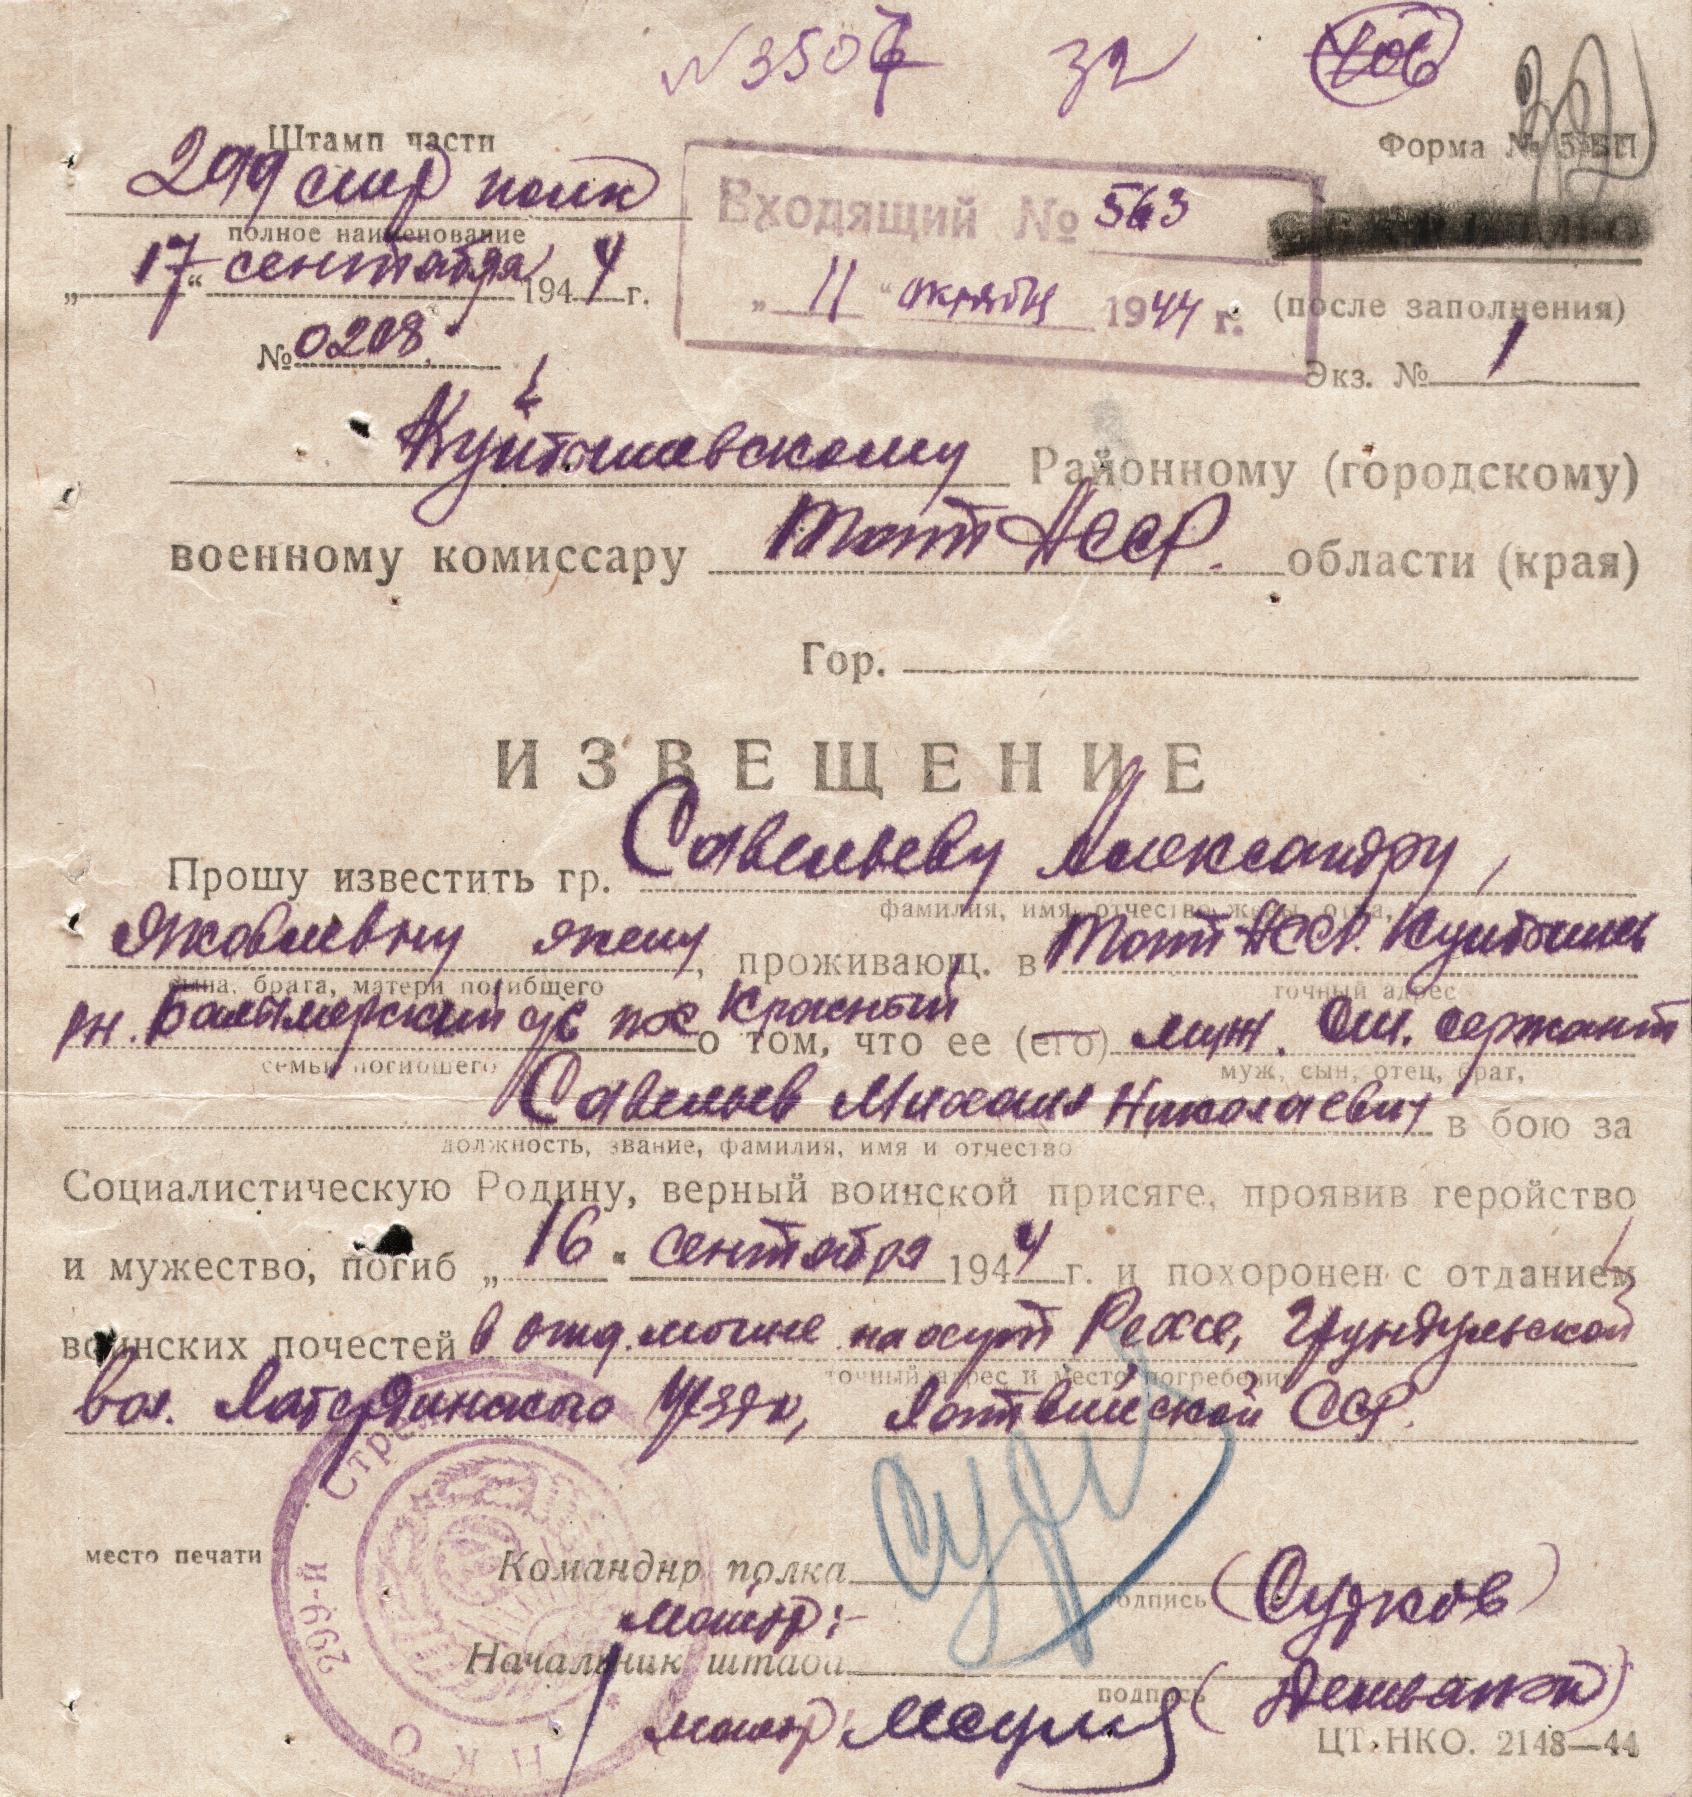 N 3507 32 406
32
Штамп части
299 стр полк
полное наименование
„17“ сентября 1944 г.
№ 0208.
Входящий № 563
„11“ октября 1944 г.
Форма № 5 БП
(после заполнения)
Экз. № 1
Куйбышевскому Районному (городскому)
военному комиссару Тат АССР. области (края)
Гор.
ИЗВЕЩЕНИЕ
Прошу известить гр. Савельеву Александру,
фамилия, имя, отчество жены, отца,
Яковлевну жену, проживающ. в Тат АССР. Куйбышев
сына, брата, матери погибшего точный адрес
рн. Балымерский с/с пос Красный о том, что ее (его) муж. Ст. сержант
семьи погибшего муж, сын, отец, брат,
Савельев Михаил Николаевич в бою за
должность, звание, фамилия, имя и отчество
Социалистическую Родину, верный воинской присяге, проявив геройство
и мужество, погиб „16“ сентября 1944 г. и похоронен с отданием
воинских почестей в отд. могиле на окут Рехсе, Грундульской
точный адрес и место погребения
вол. Уезда, Латвийской ССР.
Стрел 299-й НКО
место печати
Командир полка
подпись (Судков)
майор:-
Начальник штаба
подпись
майор
ЦТ. НКО. 2148—44